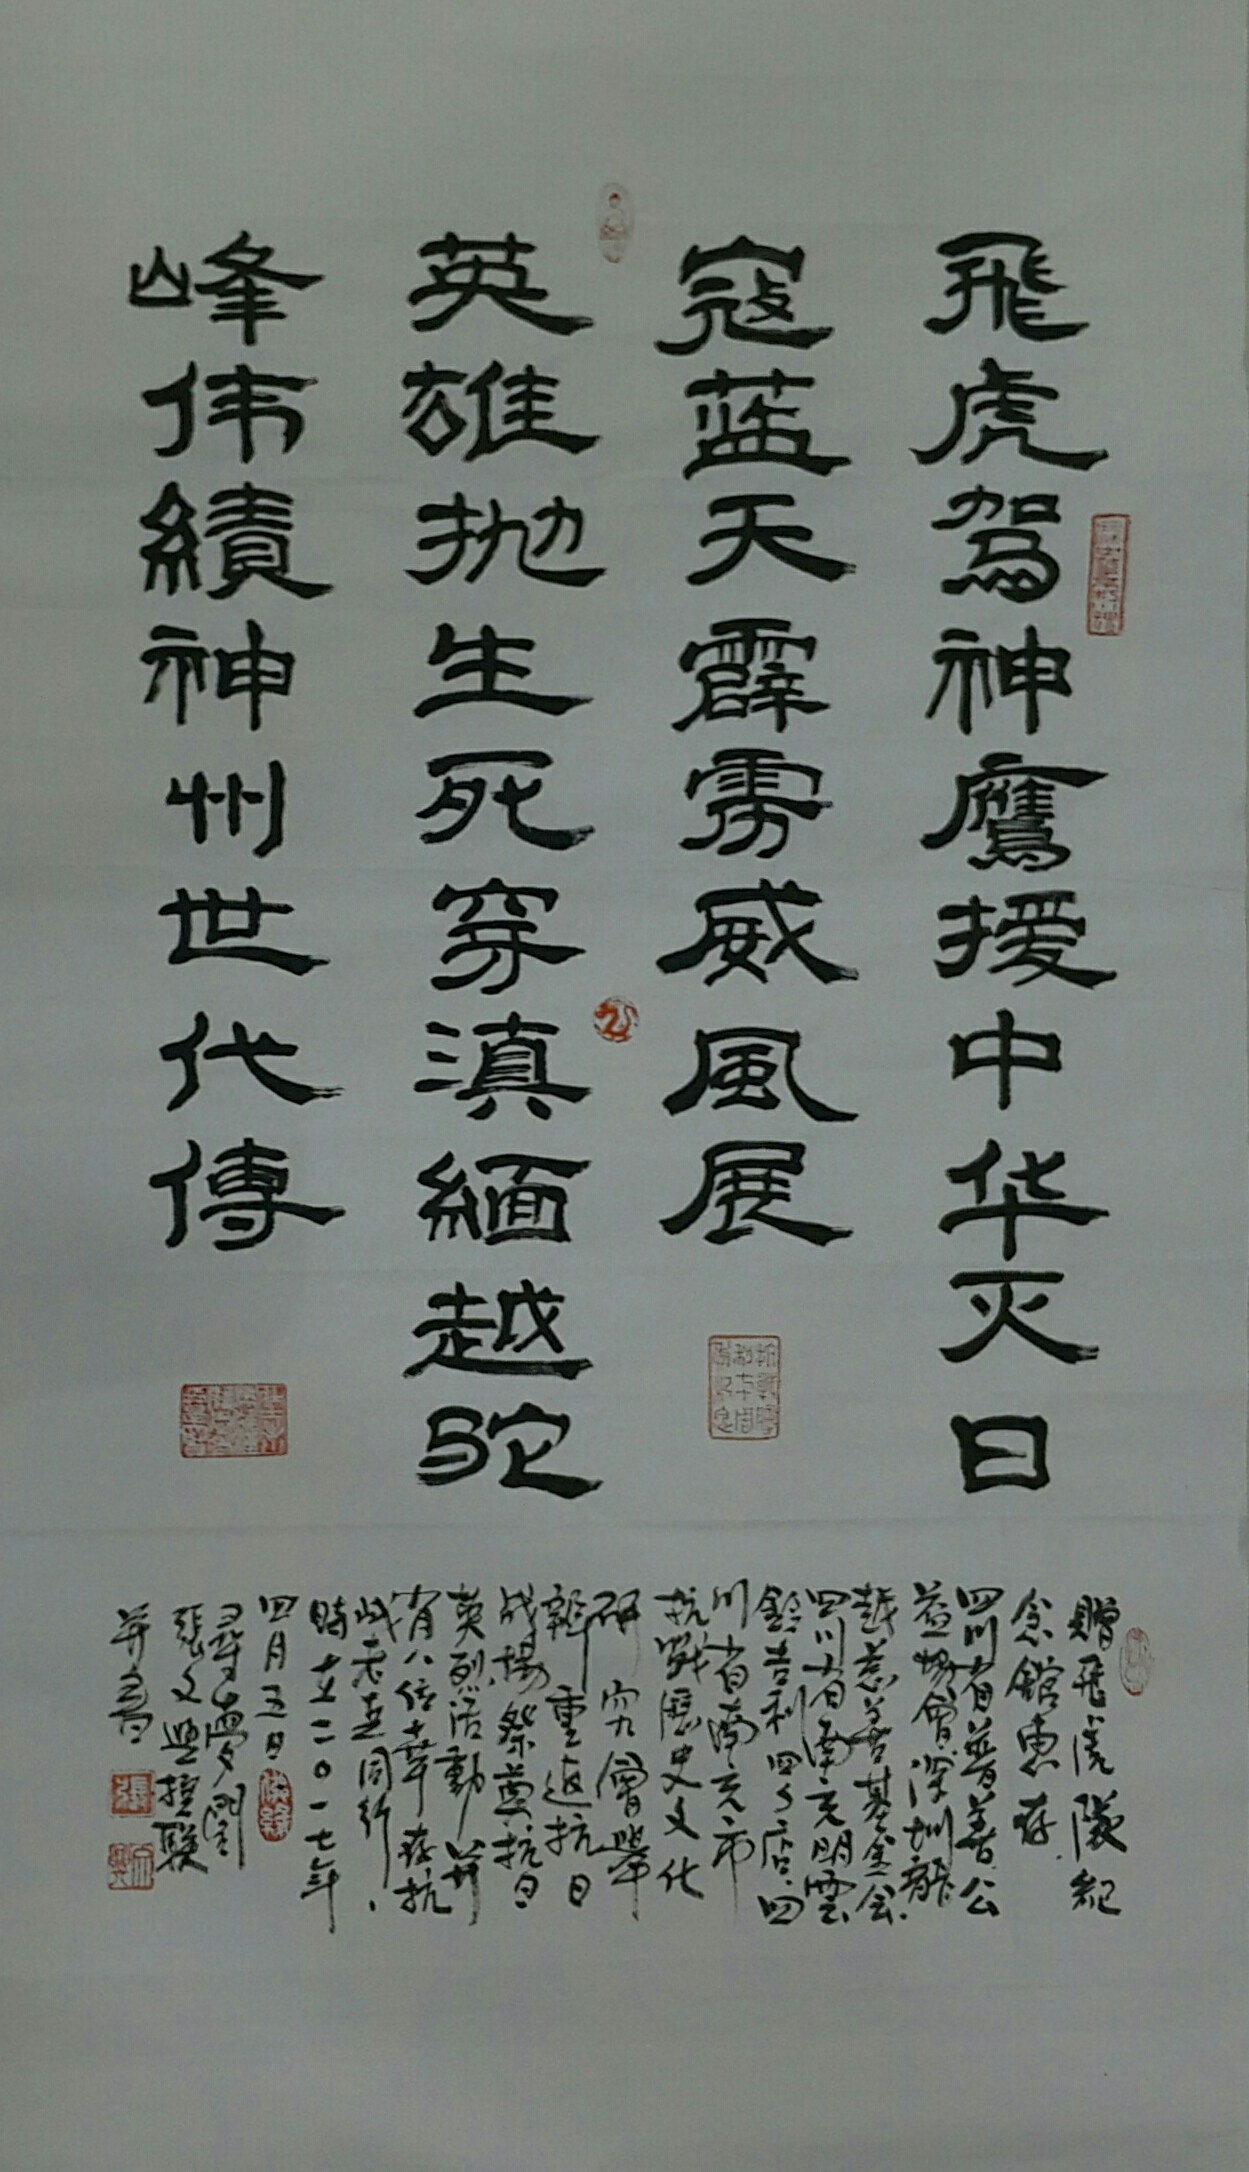 飛虎駕神鷹援中华灭日
寇蓝天霹雳威風展
英雄抛生死穿滇緬越驼
峰伟績神州世代傳
贈飛虎隊紀
念館惠存
四川省普善公
益協會深圳龍
越慈善基金会
四川省南充明雲
鈴吉利四S店四
川省南充市
抗戰歷史文化
研究會舉
辦重返抗日
战場祭奠抗日
英烈活動并
有八位尚存抗
战老兵同行
時在二0一七年
四月五日
尋夢閣
張文興撰联
并書